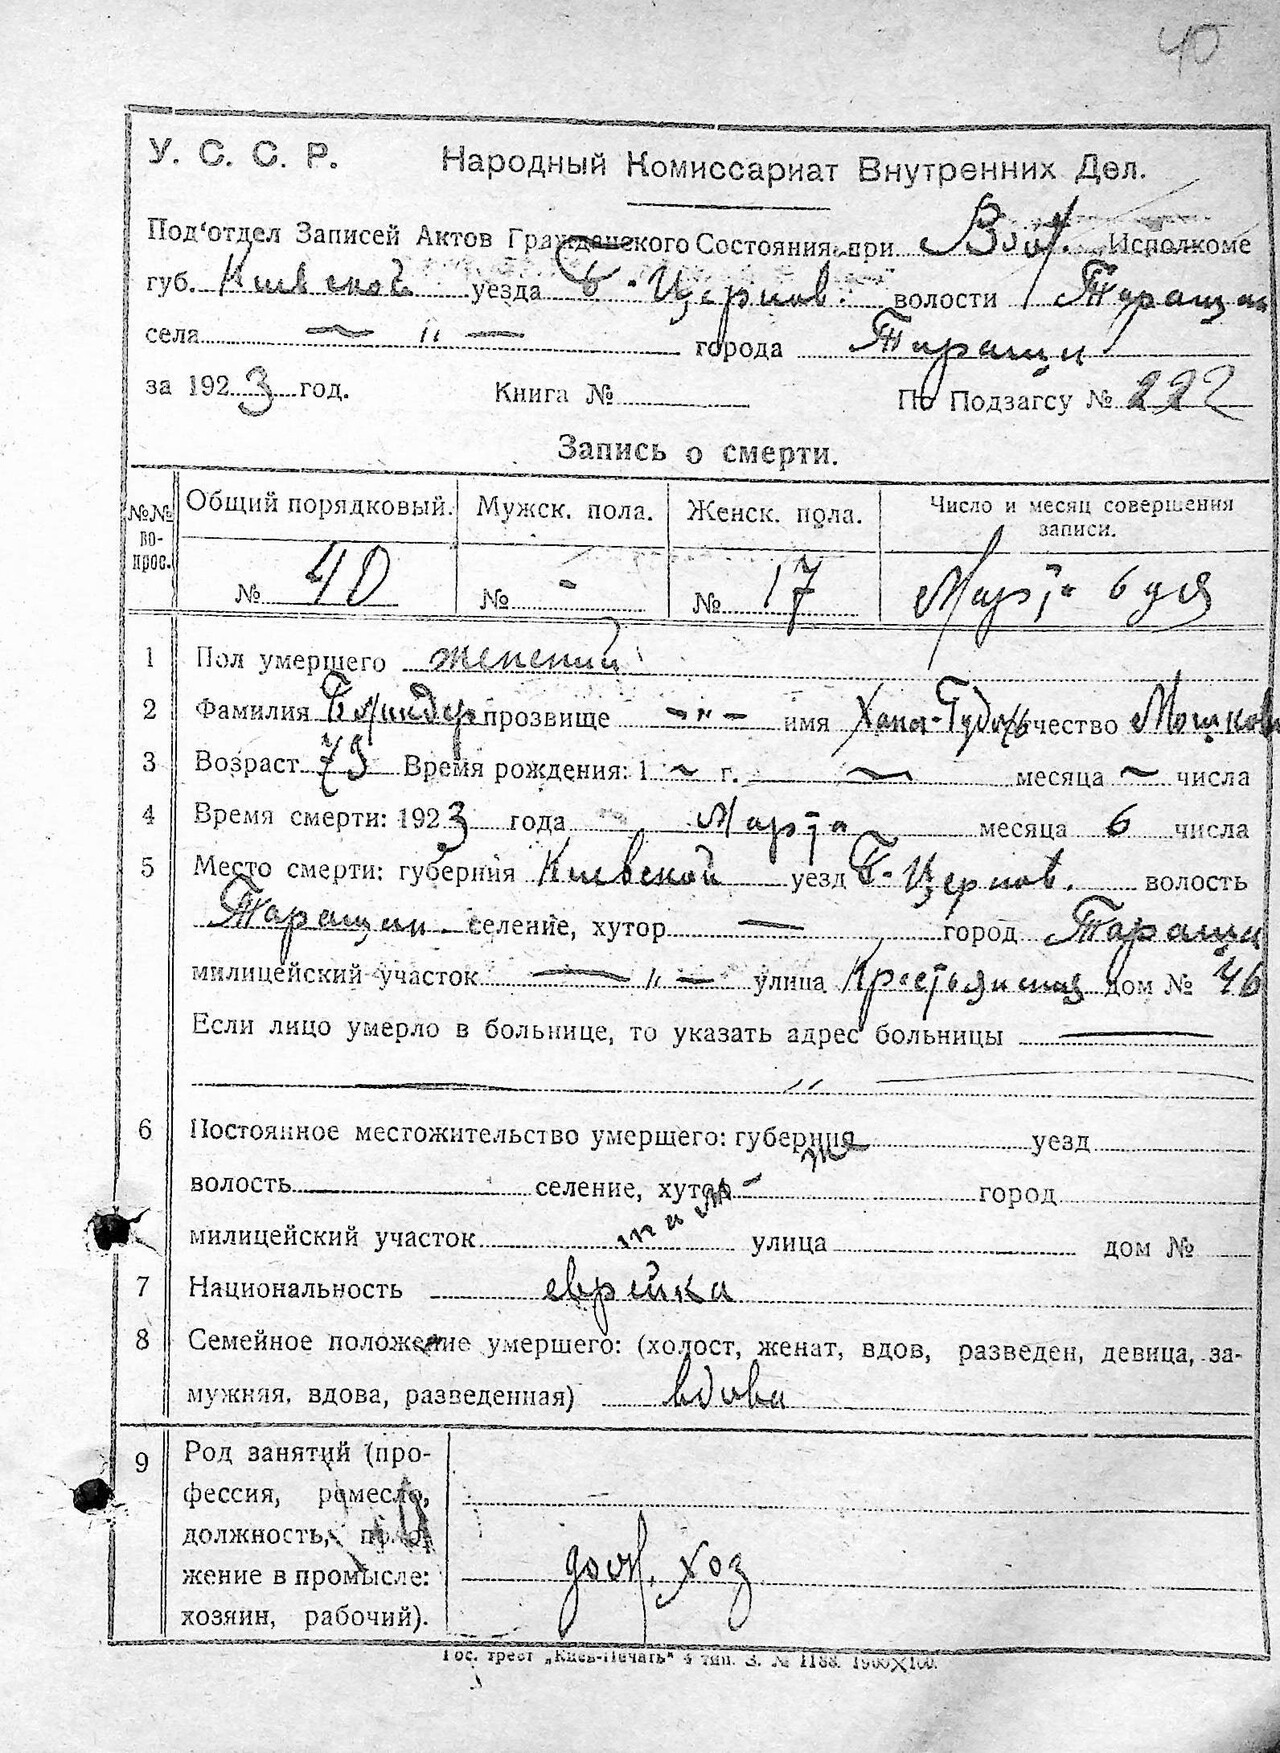 40
У. С. С. Р. Народный Комиссариат Внутренних Дел.
Под'отдел Записей Актов Гражданского Состояния при Исполкоме
губ. Киевской уезда Б-Церков. волости Таращан
села — " — города Таращи
за 1923 год. Книга № По Подзагсу № 222
Запись о смерти.
№№ во- прос. Общий порядковый. Мужск. пола. Женск. пола. Число и месяц совершения записи.
№ 40 № - № 17 Марта 6 дня
1 Пол умершего женский
2 Фамилия прозвище — " — имя Хана- отчество Мошков
3 Возраст 73 Время рождения: 1 ~ г. ~ месяца ~ числа
4 Время смерти: 1923 года Марта месяца 6 числа
5 Место смерти: губерния Киевской уезд Б-Церков. волость
Таращан селение, хутор — город Тараща
милицейский участок — " — улица Крестьянская дом № 46
Если лицо умерло в больнице, то указать адрес больницы —
— " —
6 Постоянное местожительство умершего: губерния уезд
волость селение, хутор город
милицейский участок улица дом №
там-же
7 Национальность еврейка
8 Семейное положение умершего: (холост, женат, вдов, разведен, девица, за-
мужняя, вдова, разведенная) вдова
9 Род занятий (про-
фессия, ремесло,
должность, поло-
жение в промысле:
хозяин, рабочий).
дом. хоз
Гос. трест „Киев-Печать" 4 тип. З. № 1188. 1900X100.